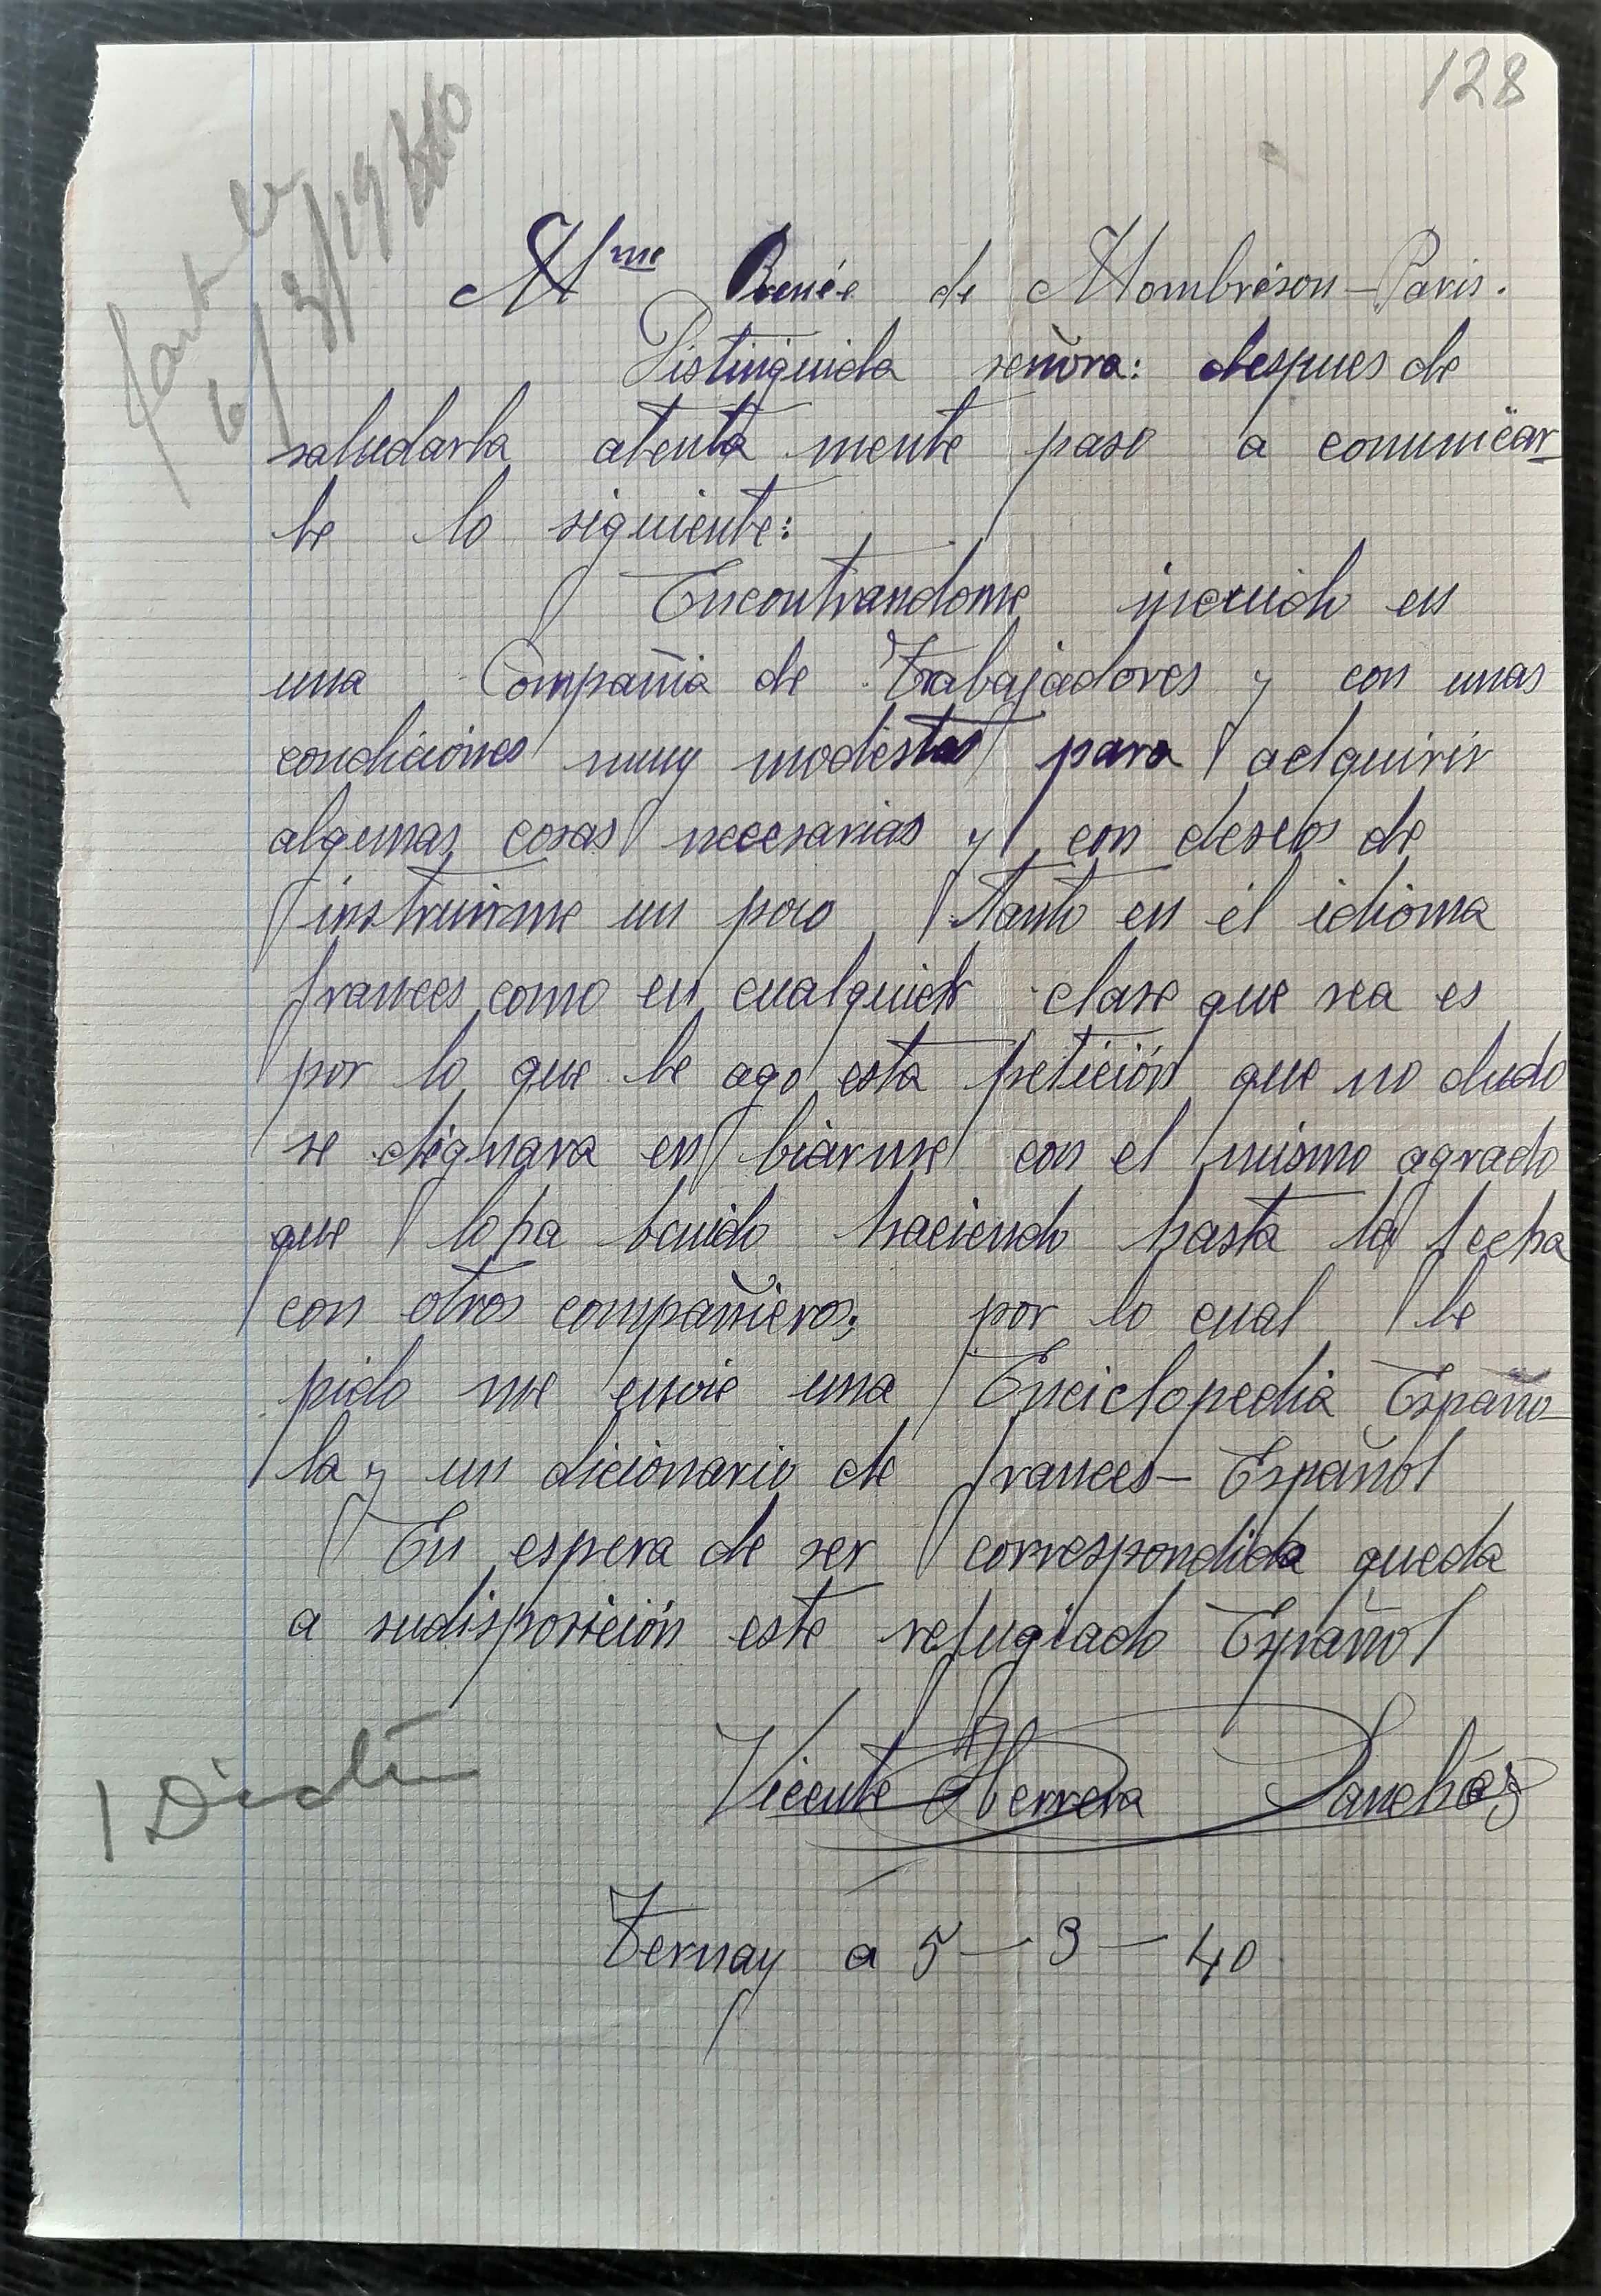 128
fait le
6/3/1940
Mme Renée de Mombrison - Paris.
Distinguida señora: despues de
saludarla atenta mente paso a comunicar
le lo siguiente:
Encontrandome incruido en
una Compañia de Trabajadores y con unas
condiciones muy modestas para adquirir
algunas cosas necesarias y con deseos de
instruirme un poco tanto en el idioma
frances como en cualquier clase que sea es
por lo que le ago esta petición que no dudo
se dignara en biarme con el mismo agrado
que lo ha benido haciendo hasta la fecha
con otros compañieros; por lo cual le
pido me envie una Enciclopedia Españo
la y un dicionario de frances - Español
En espera de ser correspondida queda
a sudisposición este refugiado Español
Vicente Herrera Sanchez
1 Dict
Ternay a 5 - 3 - 40